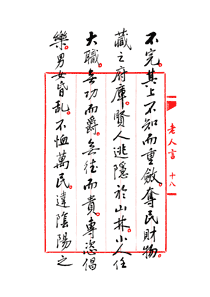 不完其上不知而重斂奪民財物
藏之府庫賢人逃隱於山林小人任
大職無功而爵無德而貴專恣倡
樂男女昏亂不恤萬民違陰陽之
老人言 十八